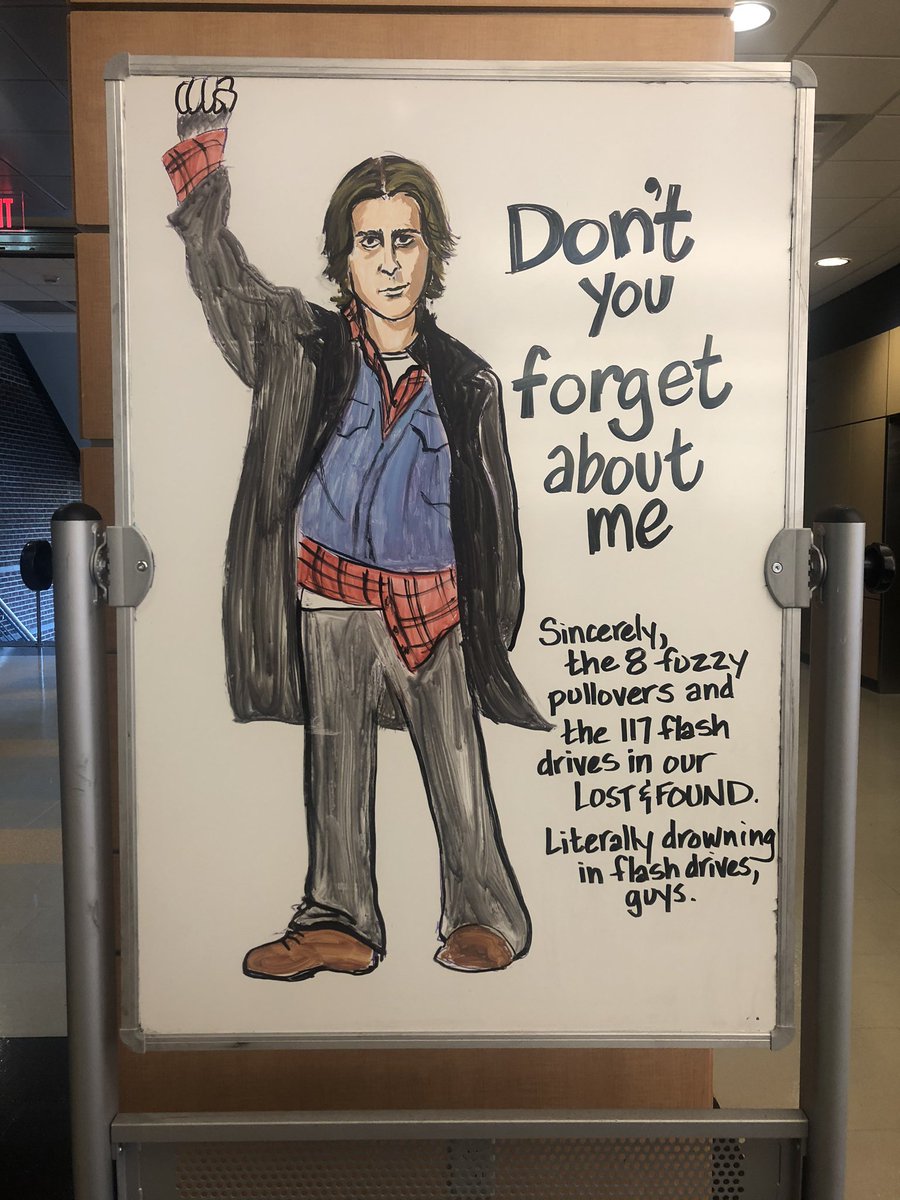 Don't
you
forget
about
me
Sincerely,
the 8 fuzzy
pullovers and
the 117 flash
drives in our
LOST & FOUND.
Literally drowning
in flash drives,
guys.
IT